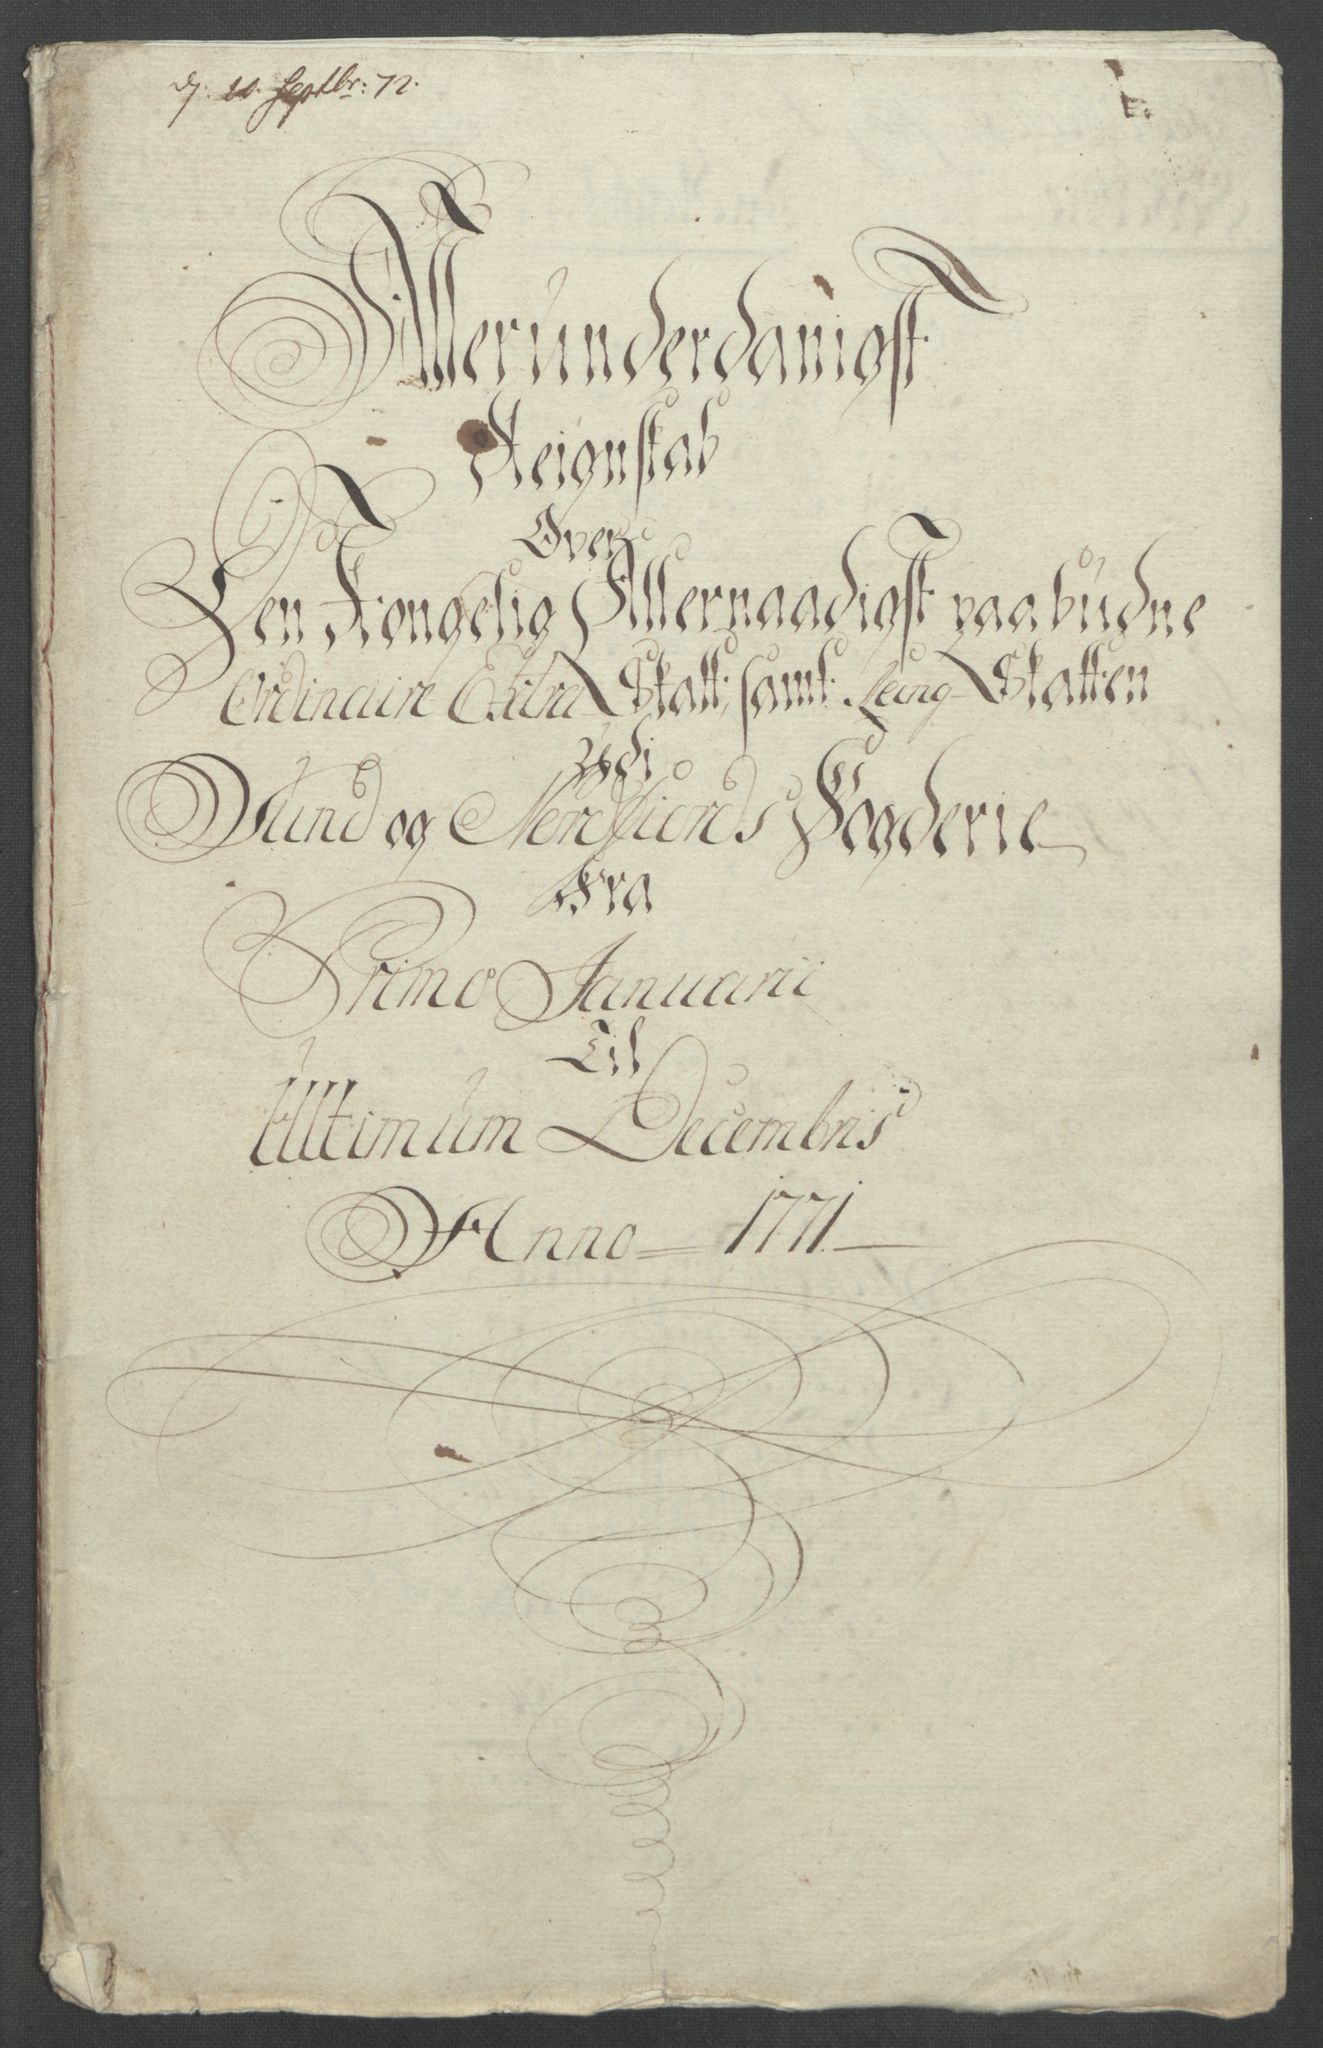 d: 11. Septbr: 72.
Allerúnderdanigst
Reignskab
Over
Den Kongelig Allernaadigst paabúdne
Ordinaire Extra Skatt, samt Leing-Skatten
Udi
Sund og Nordfiords Fogderie
Fra
Primo Januarii
Til
Ultimúm Decembris
Anno 1771